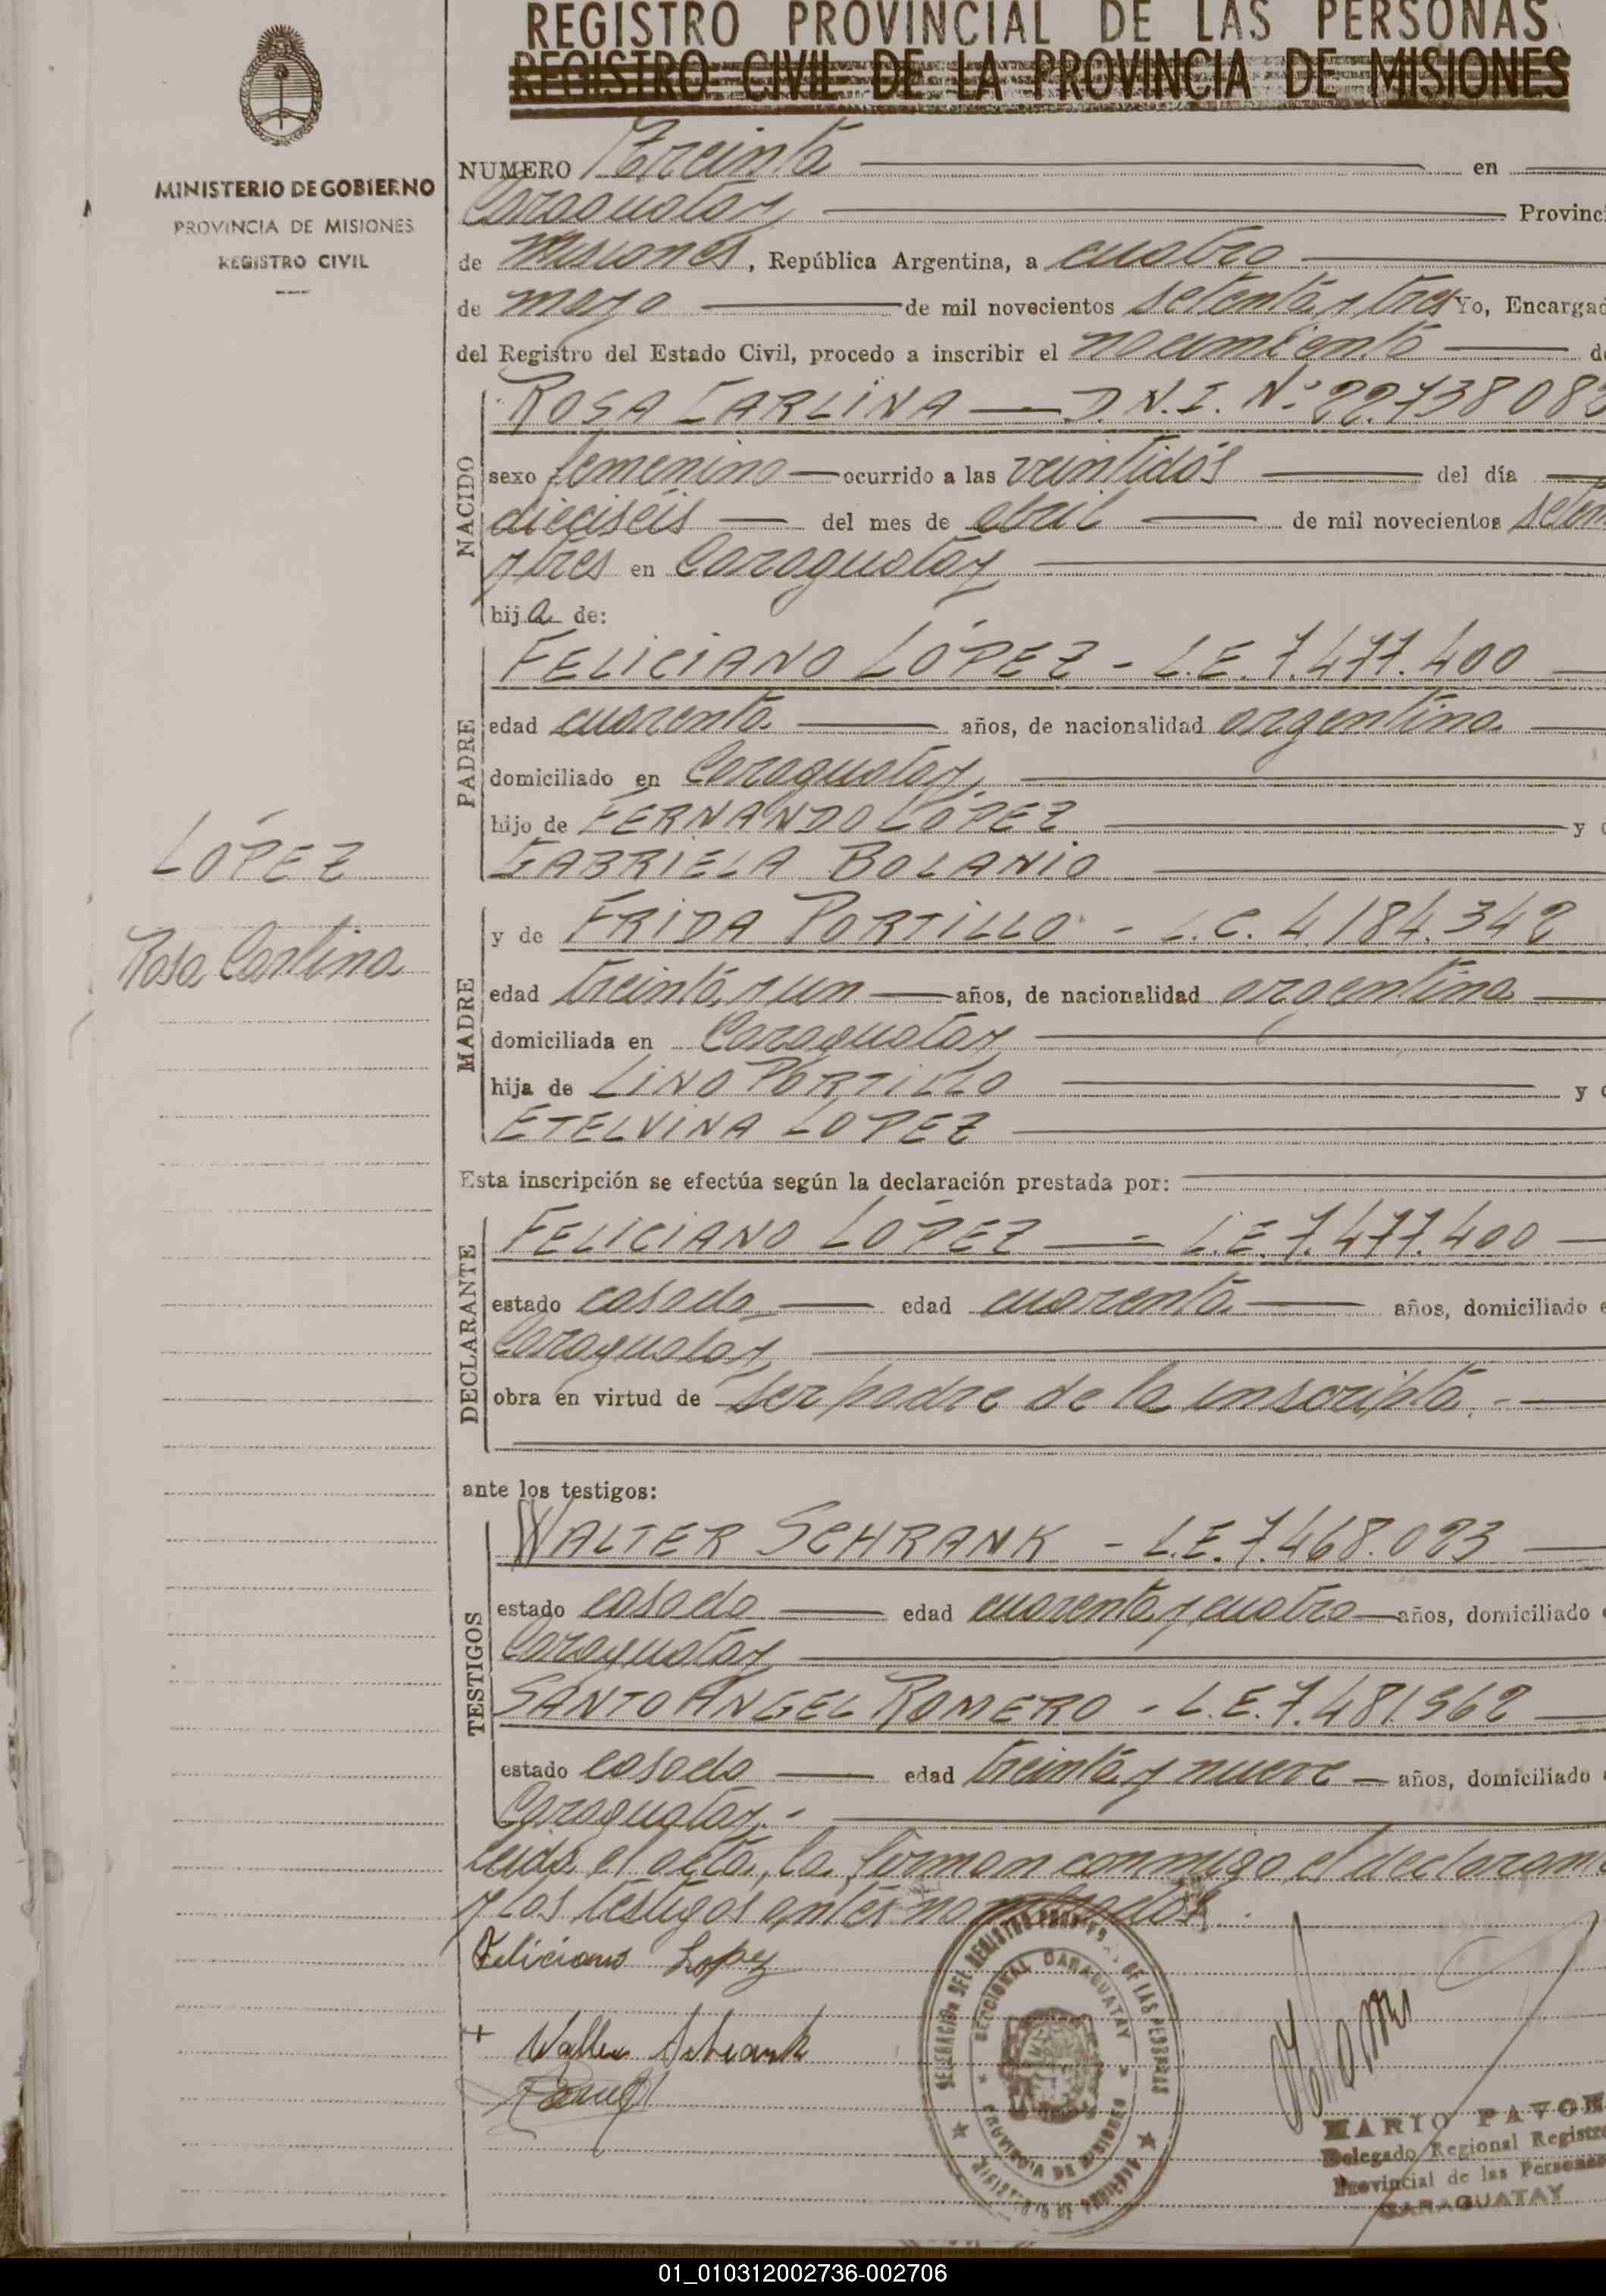 REGISTRO PROVINCIAL DE LAS PERSONAS
REGISTRO CIVIL DE LA PROVINCIA DE MISIONES
MINISTERIO DE GOBIERNO
PROVINCIA DE MISIONES
REGISTRO CIVIL
LÓPEZ
Rosa Carlina
NUMERO Treinta en
Caraguatay Provinci
de Misiones, República Argentina, a cuatro
de mayo de mil novecientos setenta y tres Yo, Encargad
del Registro del Estado Civil, procedo a inscribir el nacimiento d
NACIDO
ROSA CARLINA — D.N.I. Nº 22.738083
sexo femenino ocurrido a las veintidós del día
dieciséis del mes de abril de mil novecientos seten
y tres en Caraguatay
hija de:
PADRE
FELICIANO LÓPEZ - L.E. 7.477.400
edad cuarenta años, de nacionalidad argentina
domiciliado en Caraguatay
hijo de FERNANDO LÓPEZ y
GABRIELA BOLANIO
MADRE
y de FRIDA PORTILLO - L.C. 4.184.342
edad treinta y un años, de nacionalidad argentina
domiciliada en Caraguatay
hija de LINO PORTILLO y
ETELVINA LOPEZ
Esta inscripción se efectúa según la declaración prestada por:
DECLARANTE
FELICIANO LÓPEZ — L.E. 7.477.400
estado casado edad cuarenta años, domiciliado e
Caraguatay
obra en virtud de ser padre de la inscripta.-
ante los testigos:
TESTIGOS
WALTER SCHRANK - L.E. 7.468.023
estado casado edad cuarenta y cuatro años, domiciliado
Caraguatay
SANTO ANGEL ROMERO - L.E. 7.481.962
estado casado edad treinta y nueve años, domiciliado
Caraguatay.-
Leída el acta, la firman conmigo el declaran
y los testigos antes nombrados.
Feliciano Lopez
Walter Schrank
DELEGACIÓN DEL REGISTRO PROV. DE LAS PERSONAS
SECCIONAL CARAGUATAY
PROVINCIA DE MISIONES
MARIO PAVON
Delegado Regional Registro
Provincial de las Personas
CARAGUATAY
01_010312002736-002706